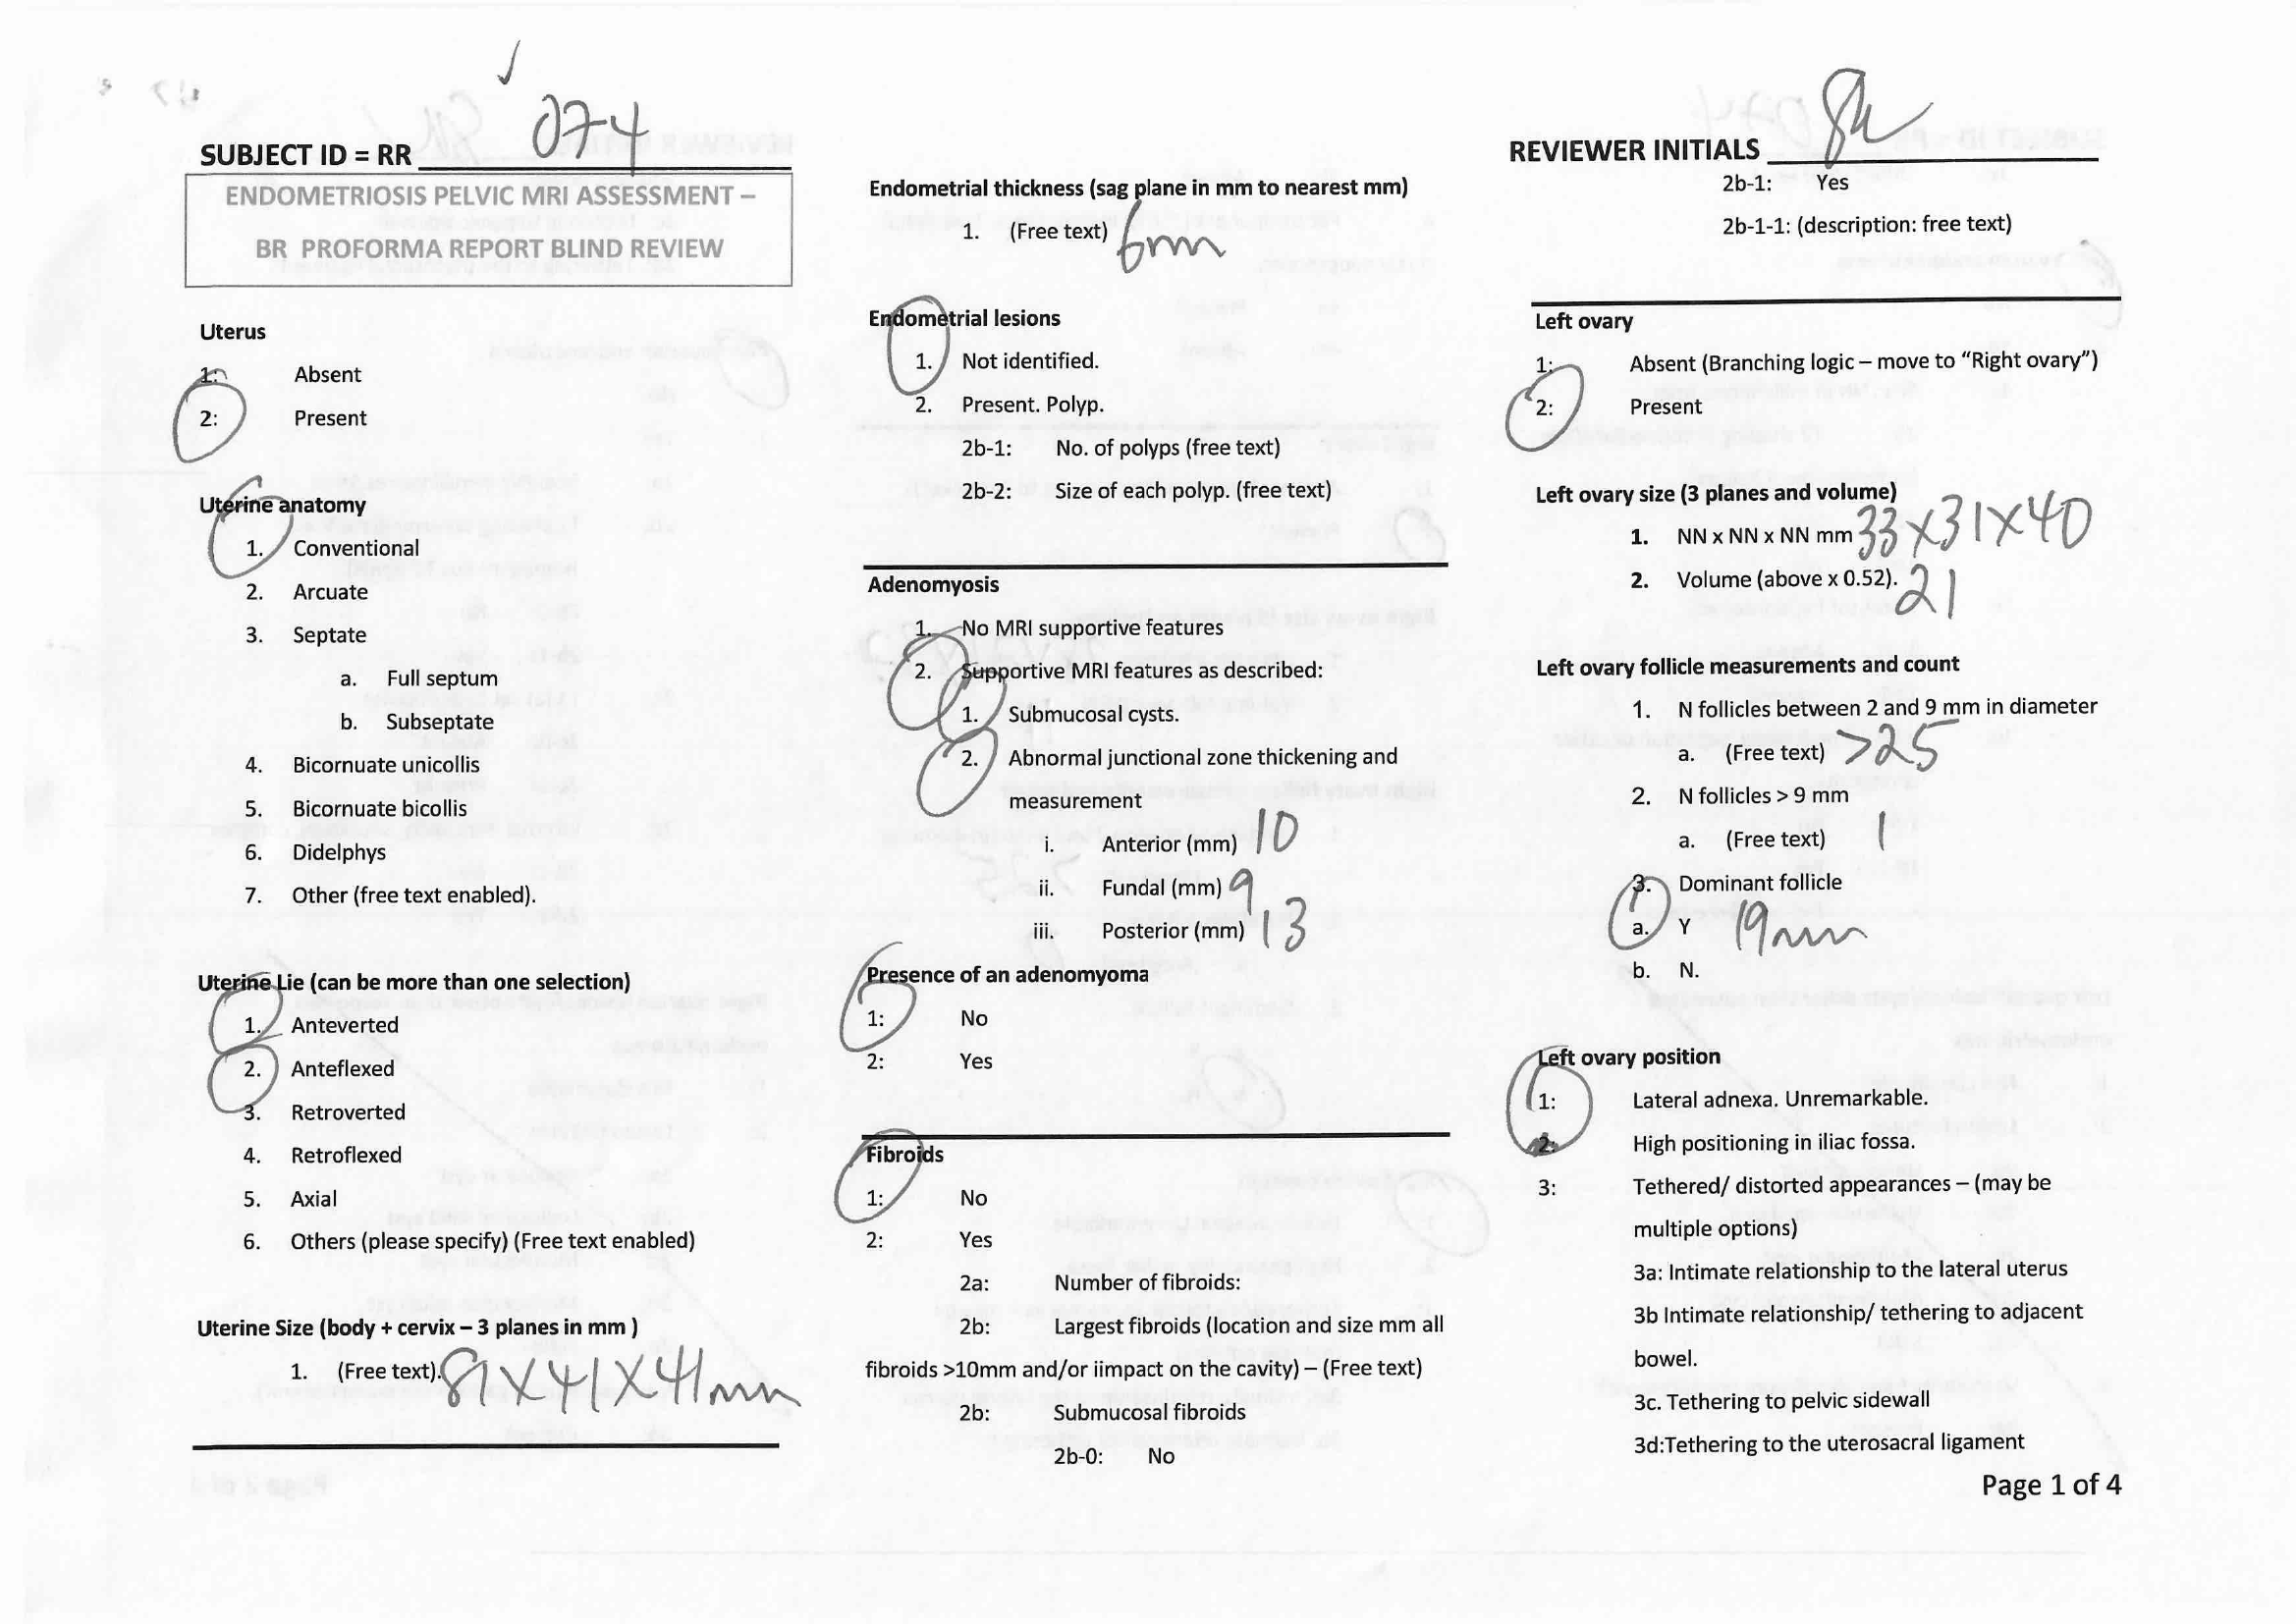 SUBJECT ID = RR 074
ENDOMETRIOSIS PELVIC MRI ASSESSMENT –
BR PROFORMA REPORT BLIND REVIEW
Uterus
1: Absent
2: Present
Uterine anatomy
1. Conventional
2. Arcuate
3. Septate
a. Full septum
b. Subseptate
4. Bicornuate unicollis
5. Bicornuate bicollis
6. Didelphys
7. Other (free text enabled).
Uterine Lie (can be more than one selection)
1. Anteverted
2. Anteflexed
3. Retroverted
4. Retroflexed
5. Axial
6. Others (please specify) (Free text enabled)
Uterine Size (body + cervix – 3 planes in mm )
1. (Free text). 81X41X41mm
Endometrial thickness (sag plane in mm to nearest mm)
1. (Free text) 6mm
Endometrial lesions
1. Not identified.
2. Present. Polyp.
2b-1: No. of polyps (free text)
2b-2: Size of each polyp. (free text)
Adenomyosis
1. No MRI supportive features
2. Supportive MRI features as described:
1. Submucosal cysts.
2. Abnormal junctional zone thickening and
measurement
i. Anterior (mm) 10
ii. Fundal (mm) 9
iii. Posterior (mm) 13
Presence of an adenomyoma
1: No
2: Yes
Fibroids
1: No
2: Yes
2a: Number of fibroids:
2b: Largest fibroids (location and size mm all
fibroids >10mm and/or iimpact on the cavity) – (Free text)
2b: Submucosal fibroids
2b-0: No
REVIEWER INITIALS
2b-1: Yes
2b-1-1: (description: free text)
Left ovary
1: Absent (Branching logic – move to “Right ovary”)
2: Present
Left ovary size (3 planes and volume)
1. NN x NN x NN mm 33x31x40
2. Volume (above x 0.52). 21
Left ovary follicle measurements and count
1. N follicles between 2 and 9 mm in diameter
a. (Free text) >25
2. N follicles > 9 mm
a. (Free text) 1
3. Dominant follicle
a. Y 19mm
b. N.
Left ovary position
1: Lateral adnexa. Unremarkable.
2: High positioning in iliac fossa.
3: Tethered/ distorted appearances – (may be
multiple options)
3a: Intimate relationship to the lateral uterus
3b Intimate relationship/ tethering to adjacent
bowel.
3c. Tethering to pelvic sidewall
3d:Tethering to the uterosacral ligament
Page 1 of 4